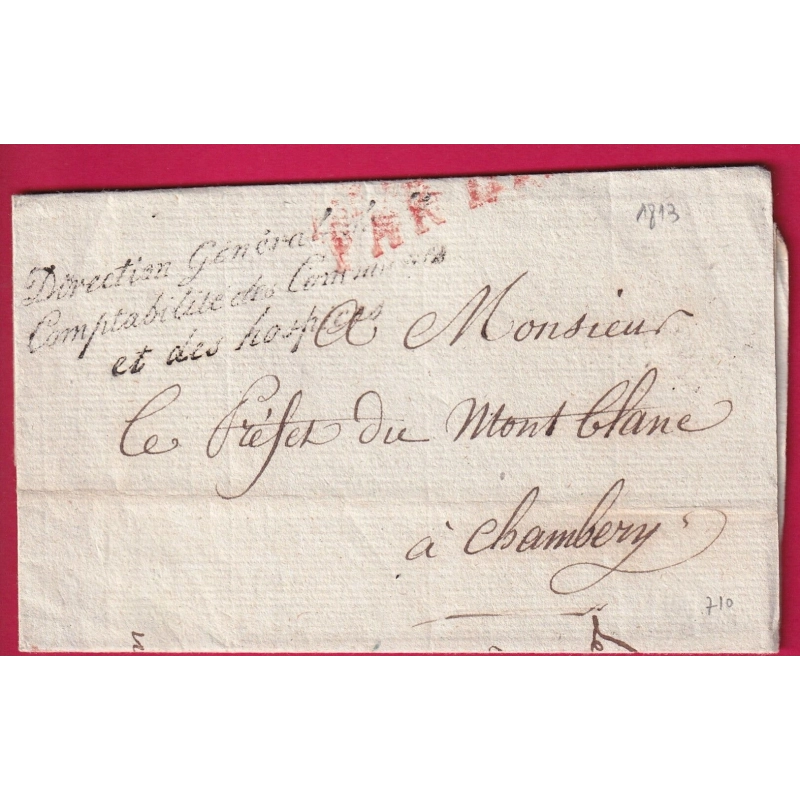 1813
PAR
Direction Générale de la
Comptabilité des Communes
et des hospices
A Monsieur
le Préfet du Mont blanc
à Chambery
710
le